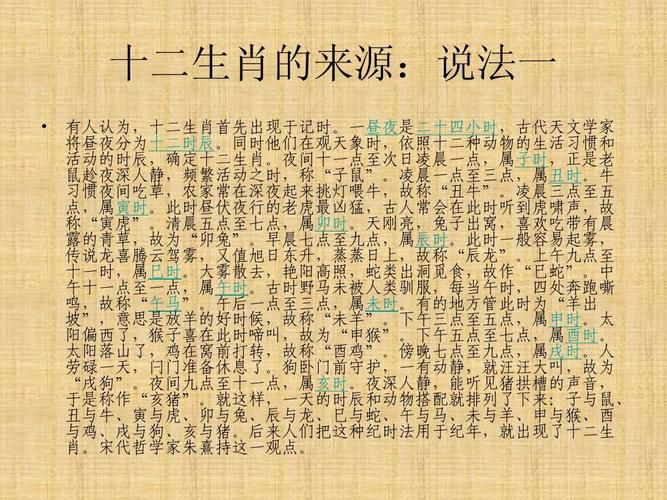 十二生肖的来源：说法一
• 有人认为，十二生肖首先出现于记时。一昼夜是二十四小时，古代天文学家
将昼夜分为十二时辰。同时他们在观天象时，依照十二种动物的生活习惯和
活动的时辰，确定十二生肖。夜间十一点至次日凌晨一点，属子时，正是老
鼠趁夜深人静，频繁活动之时，称“子鼠”。凌晨一点至三点，属丑时。牛
习惯夜间吃草，农家常在深夜起来挑灯喂牛，故称“丑牛”。凌晨三点至五
点，属寅时。此时昼伏夜行的老虎最凶猛，古人常会在此时听到虎啸声，故
称“寅虎”。清晨五点至七点，属卯时。天刚亮，兔子出窝，喜欢吃带有晨
露的青草，故为“卯兔”。早晨七点至九点，属辰时。此时一般容易起雾，
传说龙喜腾云驾雾，又值旭日东升，蒸蒸日上，故称“辰龙”。上午九点至
十一时，属巳时。大雾散去，艳阳高照，蛇类出洞觅食，故作“巳蛇”。中
午十一点至一点，属午时。古时野马未被人类驯服，每当午时，四处奔跑嘶
鸣，故称“午马”。午后一点至三点，属未时。有的地方管此时为“羊出
坡”，意思是放羊的好时候，故称“未羊”。下午三点至五点，属申时。太
阳偏西了，猴子喜在此时啼叫，故为“申猴”。下午五点至七点，属酉时。
太阳落山了，鸡在窝前打转，故称“酉鸡”。傍晚七点至九点，属戌时。人
劳碌一天，闩门准备休息了。狗卧门前守护，一有动静，就汪汪大叫，故为
“戌狗”。夜间九点至十一点，属亥时。夜深人静，能听见猪拱槽的声音，
于是称作“亥猪”。就这样，一天的时辰和动物搭配就排列了下来：子与鼠、
丑与牛、寅与虎、卯与兔、辰与龙、巳与蛇、午与马、未与羊、申与猴、酉
与鸡、戌与狗、亥与猪。后来人们把这种纪时法用于纪年，就出现了十二生
肖。宋代哲学家朱熹持这一观点。